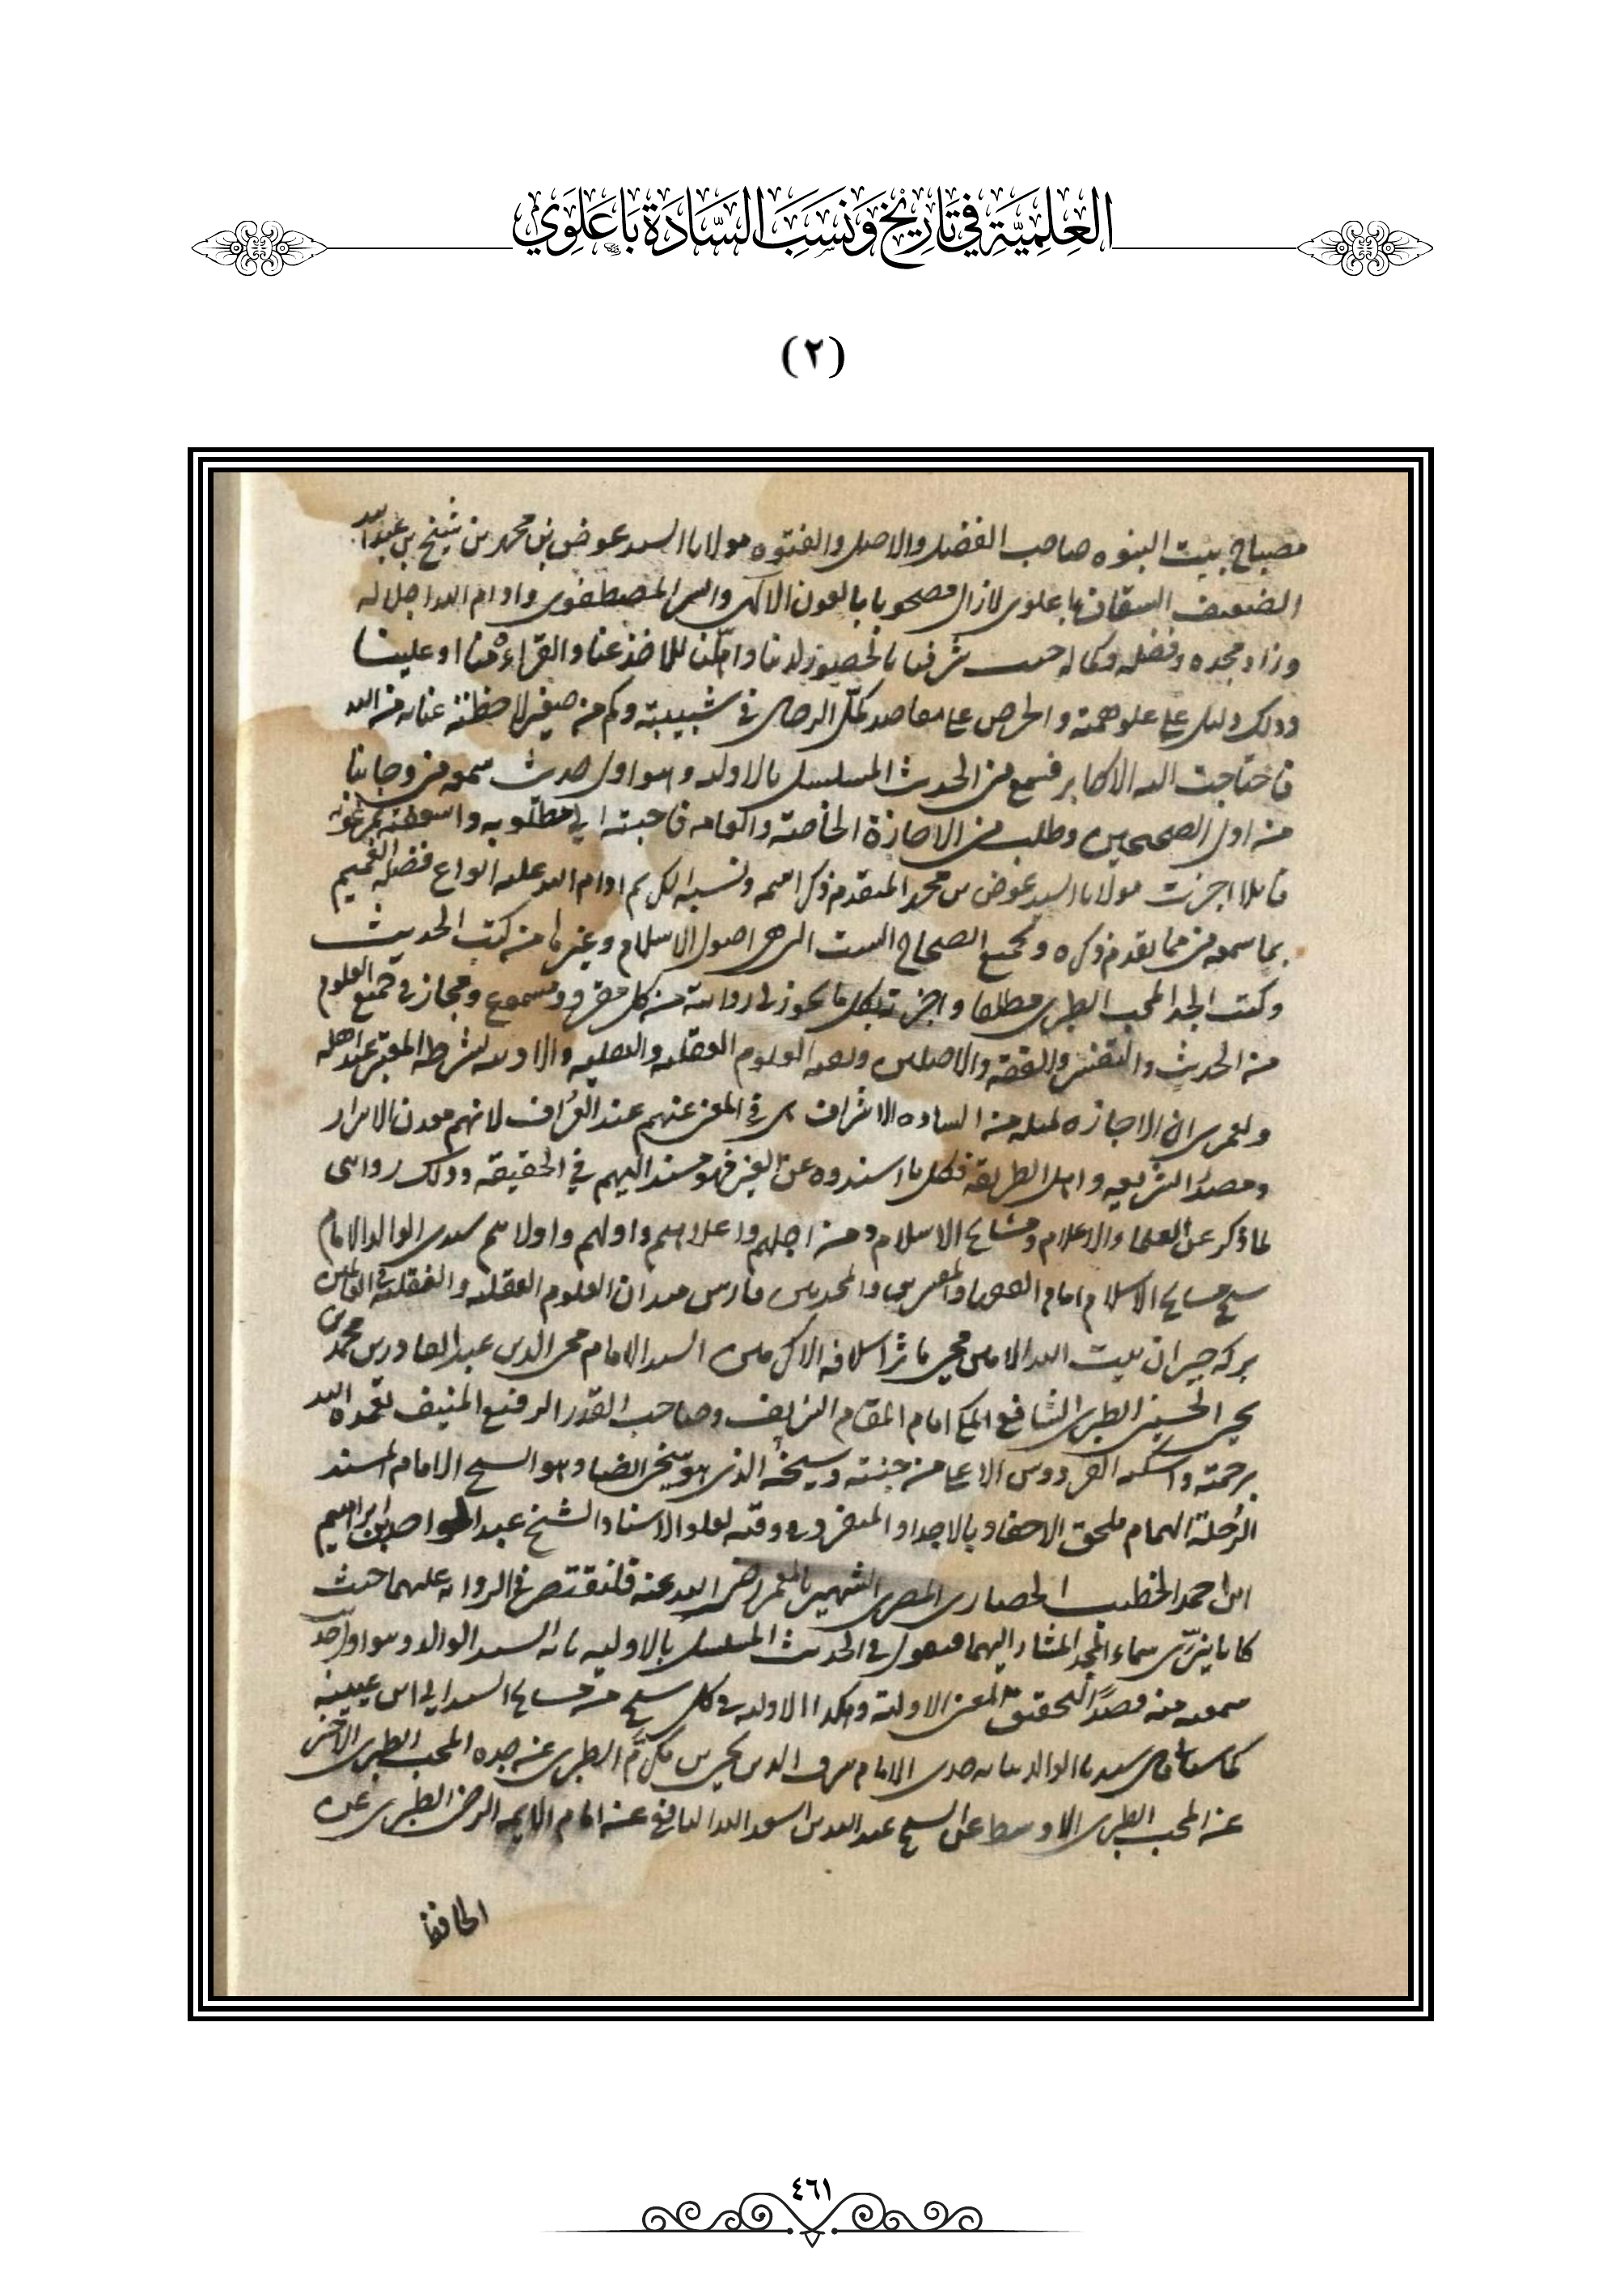 العِلمِيَّة في تَاريْخ وَنَسَب السَّادَة بَاعَلَوي
(٢)
مصباح بيت النبوه صاحب الفضل والاصل والفتوه مولانا السيد عوض بن محمد بن شيخ بن عبد الله
الضعيف السقاف باعلوى لازال مصحوبا بالعون الالهى والسر المصطفوى وادام الله اجلاله
وزاد مجده وفضله وكماله حيث شرفنا بالحضور لدينا للاخذ عنا والقراءة منا او علينا
وذلك دليل على علو همته والحرص على مقاصد كمّل الرجال في شبيبته وكم من صغير لاحظته عنايه من الله
فاحتاجت اليه الاكابر فسمع من الحديث المسلسل بالاوليه وهو اول حديث سمعه من وجانبا
من اول الصحيحين وطلب من الاجازة الخاصة والعامه فاجبته الى مطلوبه
قائلا اجزت مولانا السيد عوض بن محمد المتقدم ذكر اسمه ونسبه الكريم ادام الله عليه انواع فضله العميم
بما سمعه من مما تقدم ذكره وبجميع الصحاح الست التى هى اصول الاسلام وغيرها من كتب الحديث
وكتب الجد المحب الطبرى مطلقا واجزته بكل ما يجوز لى روايته من كل مقروء ومسموع ومجاز في جميع العلوم
من الحديث والتفسير والفقه والاصلين وبقية العلوم العقليه والنقليه والادبيه بشرطه المعتبر عند اهله
ولعمرى ان الاجازه لمثله من الساده الاشراف هى في المعنى عنهم عند العرّاف لانهم معدن الاسرار
ومصدر الشريعه واهل الطريقه فكل ما اسندوه عن الغير فهو مسند اليهم في الحقيقه وذلك روايتى
لما ذكر عن العلماء الاعلام ومشايخ الاسلام ومن اجلهم واعلاهم واولهم واولاهم سيدى الوالد الامام
شيخ مشايخ الاسلام امام الفقهاء والمحدثين فارس ميدان العلوم العقليه والنقليه
بركه جيران بيت الله الامين محيى مآثر اسلافه الاكرمين السيد الامام محى الدين عبد القادر بن محمد بن
يحيى الحسينى الطبرى الشافعى المكى امام المقام الشريف وصاحب القدر الرفيع المنيف تغمده الله
برحمته واسكنه الفردوس الاعلى من جنته وشيخه الذى هو شيخى ايضا وهو الشيخ الامام المسند
الرُحلة الهمام ملحق الاحفاد بالاجداد المنفرد في وقته بعلو الاسناد الشيخ عبد الواحد بن ابراهيم
ابن احمد الخطيب الحصارى المصرى الشهير بالمعمر رضى الله عنه فلنقتصر في الروايه عليهما حيث
كانا نيّرى سماء المجد المشار اليهما فنقول في الحديث المسلسل بالاوليه نا به السيد الوالد وهو اول حديث
سمعته منه قصدًا لتحقيق معنى الاولية وهكذا الاوليه في كل شيخ من مشايخ السند الى ابن عيينه
الوالد نا به جدى الامام شرف الدين يحيى بن مكرّم الطبرى عن جده المحب الطبرى الاخير
عن المحب الطبرى الاوسط عن الشيخ عبد الله بن اسعد اليافعى عن امام الايمه الرضى الطبرى عن
الحافظ
٤٦١